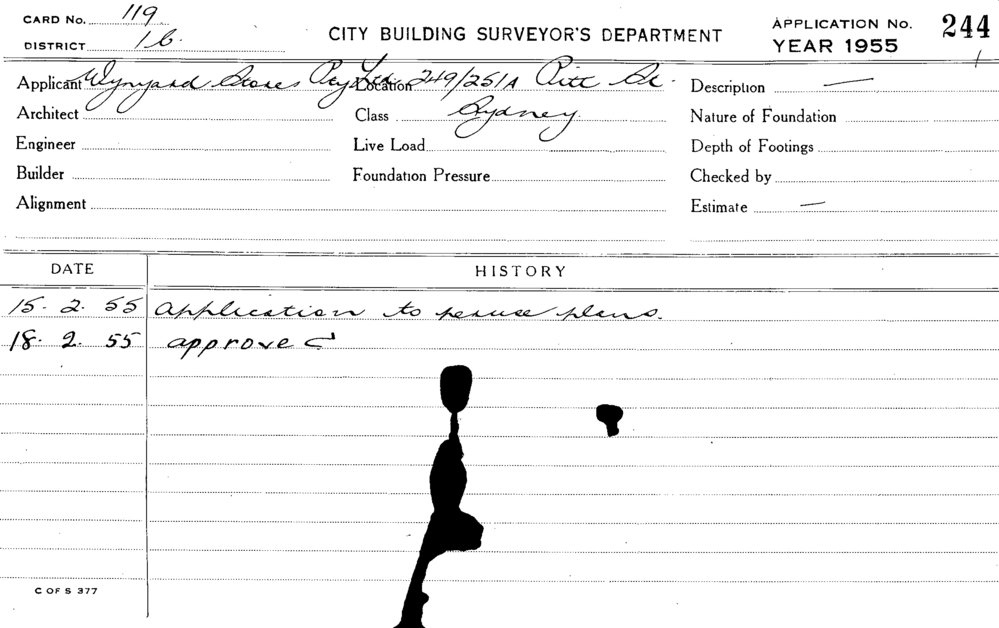 CARD No. 119
DISTRICT 1b.
CITY BUILDING SURVEYOR'S DEPARTMENT
APPLICATION No. 244
YEAR 1955
Applicant Wynyard Stores Pty Ltd. Location 249/251A Pitt St. Description —
Architect Class Sydney. Nature of Foundation
Engineer Live Load Depth of Footings
Builder Foundation Pressure Checked by
Alignment Estimate —
DATE HISTORY
15. 2. 55 Application to peruse plans.
18. 2. 55 approved
C OF S 377